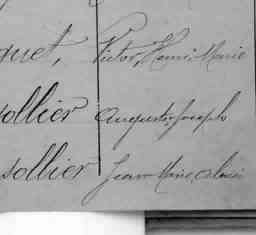 quet, Victor, Henri, Marie
sollier Auguste, Joseph
sollier Jean Marie, Alexis